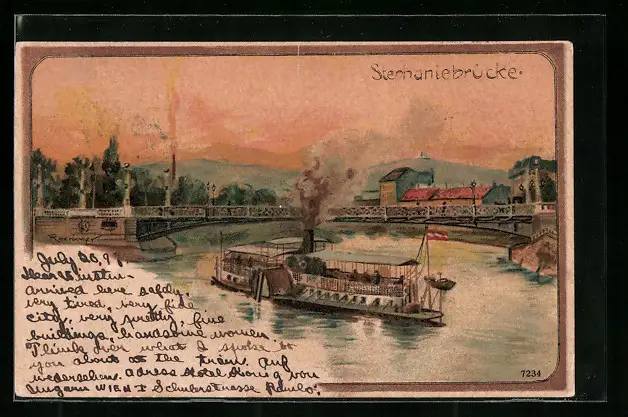 Stephaniebrücke.
July 20, 9
arrived here safely,
very tired, very fine
city, very pretty, fine
buildings, handsome women
Think over what I spoke to
you about at the train, auf
wedersehen. adress Hotel König von
Ungarn WIEN I Schulerstrasse
7234